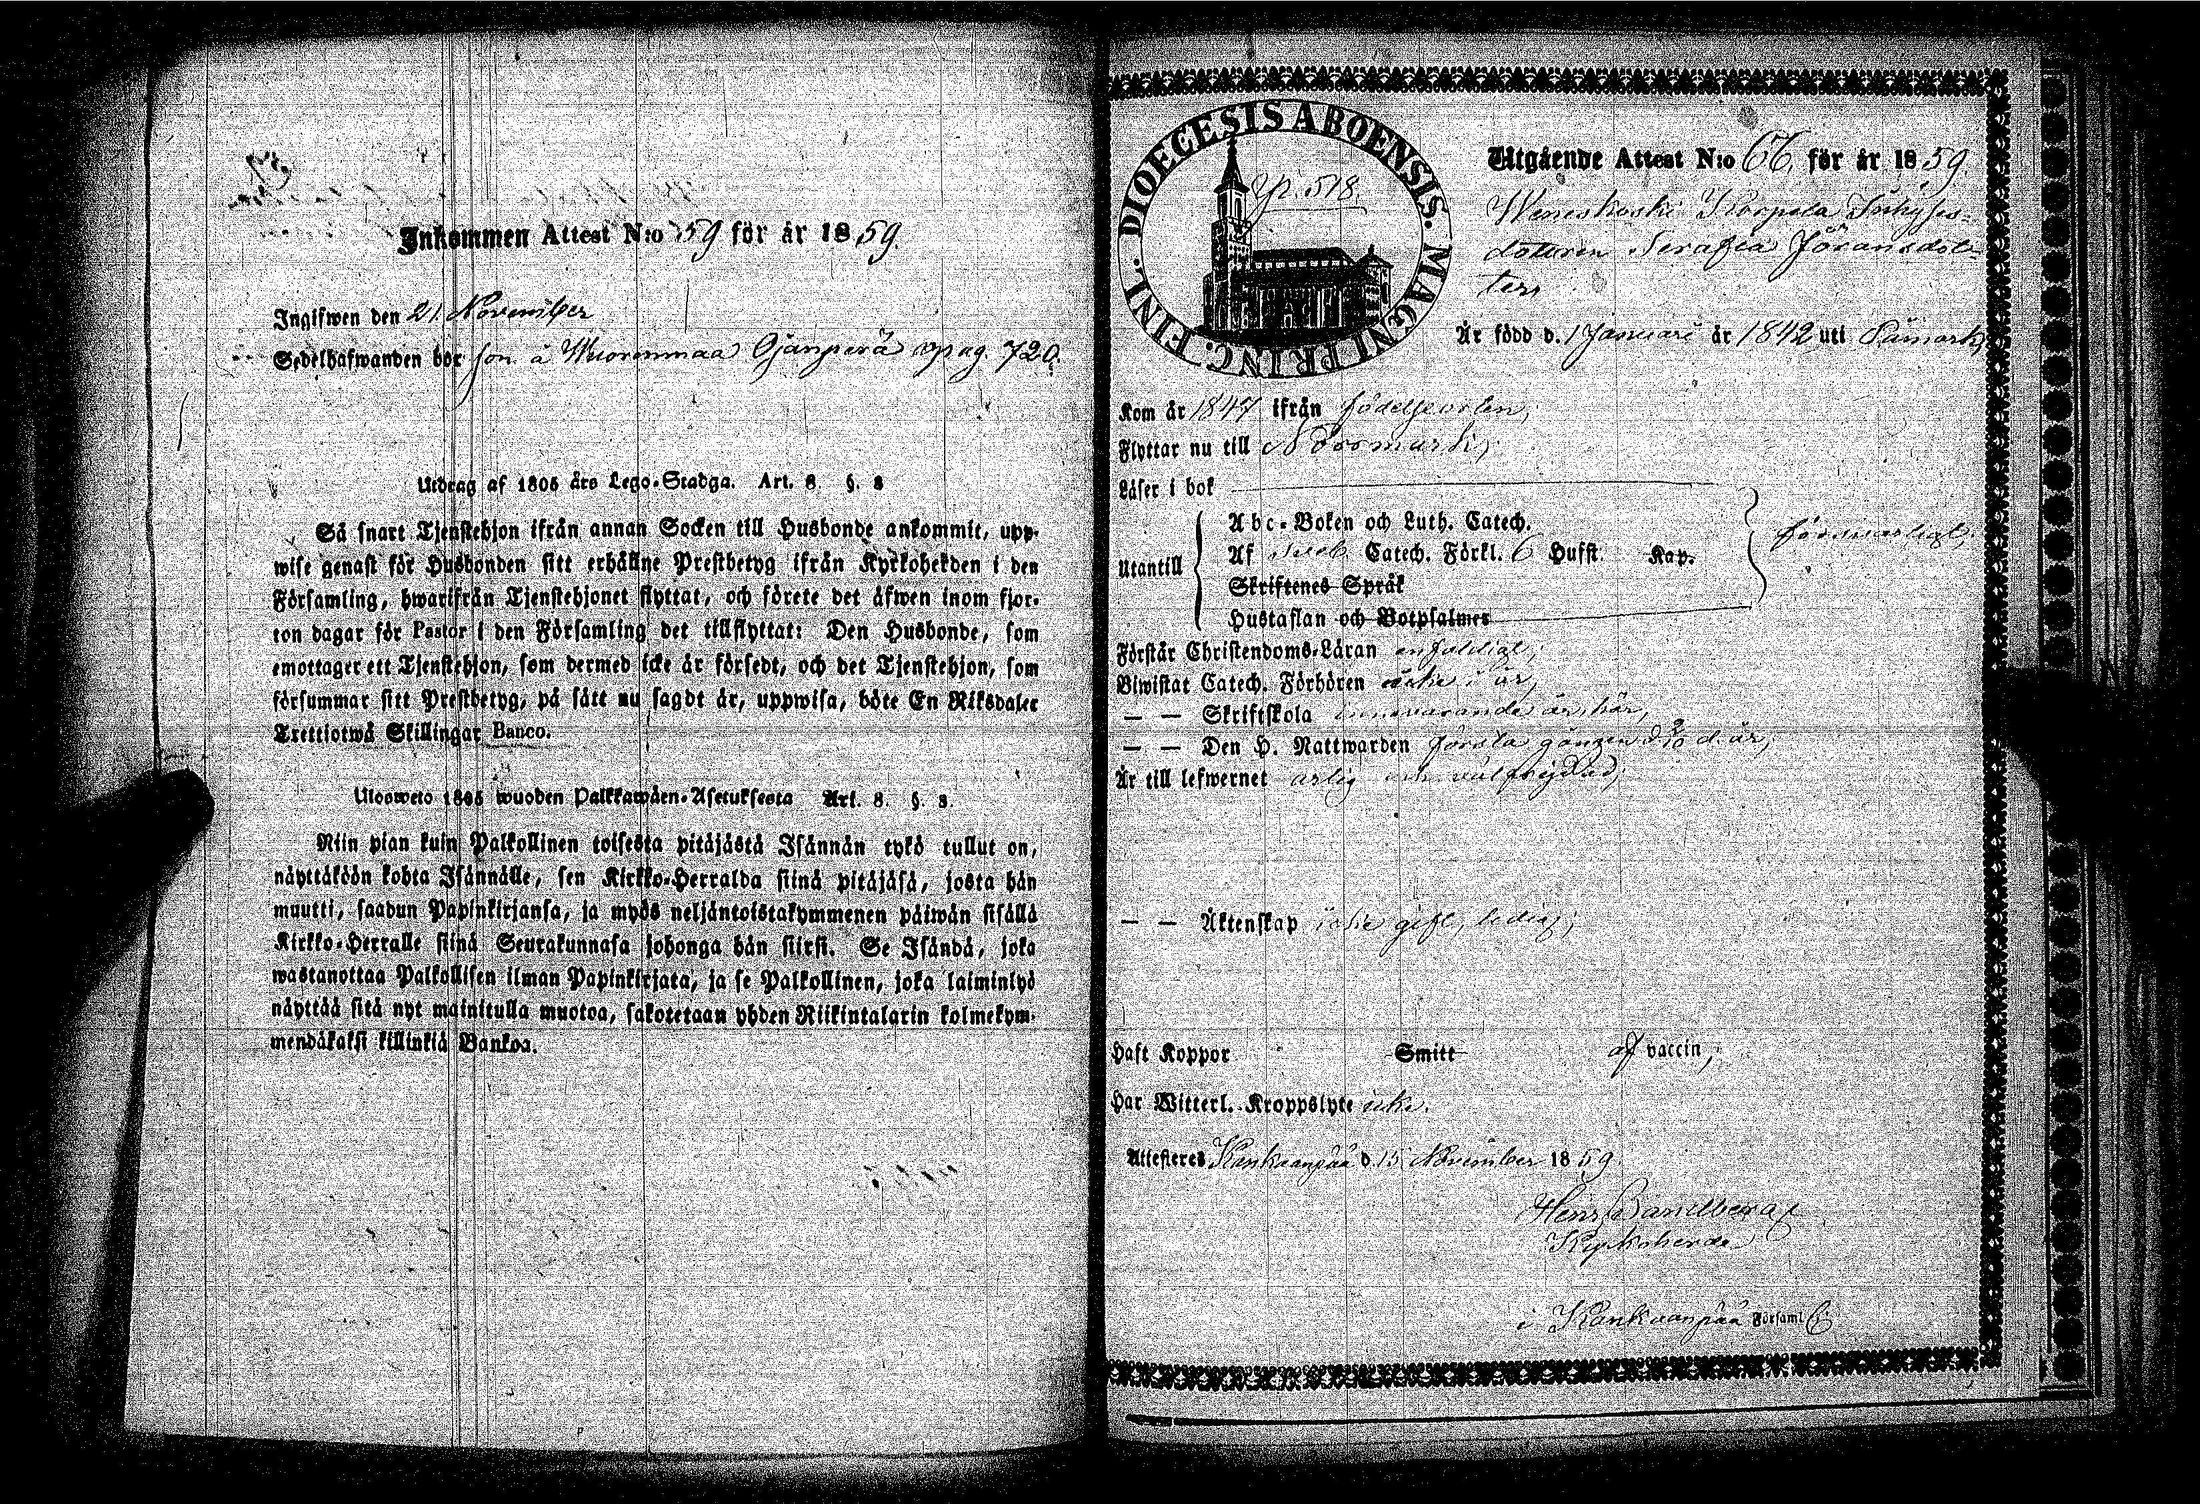 Inkommen Attest N:o 59 för år 1859.
Ingifwen den 21 November
Sedelhafwanden bor på Wuorenmaa Ojanperä pag. 720.
Utdrag af 1805 års Lego-Stadga. Art. 8. §. 8
Så snart Tjenstehjon ifrån annan Socken till Husbonde ankommit, upp-
wise genast för Husbonden sitt erhållne Prestbetyg ifrån Kyrkoherden i den
Församling, hwarifrån Tjenstehjonet flyttat, och förete det äfwen inom fjor-
ton dagar för Pastor i den Församling det tillflyttat: Den Husbonde, som
emottager ett Tjenstehjon, som dermed icke är försedt, och det Tjenstehjon, som
försummar sitt Prestbetyg, på sätt nu sagdt är, uppwisa, böte En Riksdaler
Trettiotwå Skillingar Banco.
Ulosweto 1805 wuoden Palkkawäen-Asetuksesta Art. 8. §. 8.
Niin pian kuin Palkollinen toisesta pitäjästä Isännän tykö tullut on,
näyttäköön kohta Isännälle, sen Kirkko-Herralda siinä pitäjäsä, josta hän
muutti, saadun Papinkirjansa, ja myös neljäntoistakymmenen päiwän sisällä
Kirkko-Herralle siinä Seurakunnasa johonga hän siirsi. Se Isändä, joka
wastanottaa Palkollisen ilman Papinkirjata, ja se Palkollinen, joka laiminlyö
näyttää sitä nyt mainitulla muotoa, sakotetaan yhden Riikintalarin kolmekym-
mendäkaksi killinkiä Bankoa.
DIOECESIS ABOENSIS. MAGNI PRINC. FINL.
p. 518.
Utgående Attest N:o 67, för år 1859.
Weneskoski Korpela Inhyses-
dotteren Serafia Göransdot-
ter,
Är född d. 1 Januari år 1842 uti Påmark,
Kom år 1847 ifrån födelseorten,
Flyttar nu till Norrmark,
Läser i bok
Utantill
Abc-Boken och Luth. Catech.
Af Sveb. Catech. Förkl. 6 Hufst. Kap.
Skriftenes Språk
Hustaflan och Botpsalmer
försvarligt,
Förstår Christendoms-Läran enfaldigt,
Biwistat Catech. Förhören äfven i år,
— — Skriftskola innevarande år här,
— — Den H. Nattwarden första gången d. 2/10 d. år,
Är till lefwernet ärlig och välfrejdad,
— — Äktenskap icke gift, ledig,
Haft Koppor Smitt af vaccin,
Har Witterl. Kroppslyte icke.
Attesteres Kankaanpää d. 15 November 1859
Henr. Sandberg
Kyrkoherde
i Kankaanpää Församl.